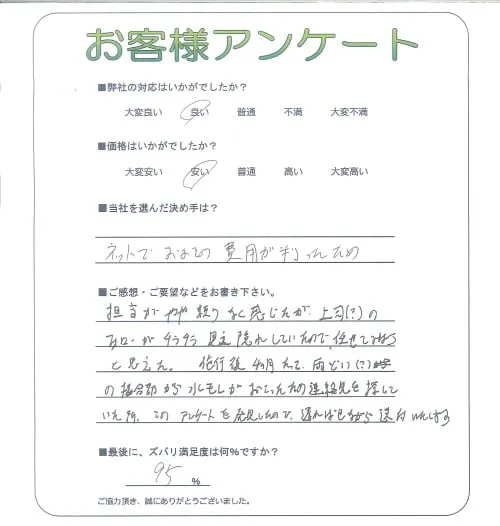 お客様アンケート
■弊社の対応はいかがでしたか？
大変良い 良い 普通 不満 大変不満
■価格はいかがでしたか？
大変安い 安い 普通 高い 大変高い
■当社を選んだ決め手は？
ネットで およその 費用が判ったため
■ご感想・ご要望などをお書き下さい。
担当が やや 頼りなく感じたが、上司(?)の
フォローが チラチラ 見え 隠れしていたので、任せてみよう
と思えた。 施行後 4ヶ月たって、雨どい(?)
の接合部から 水もれがおこったため連絡先を探して
いた所、この アンケートを発見したので、遅ればせながら 送付いたします
■最後に、ズバリ満足度は何％ですか？
95 %
ご協力頂き、誠にありがとうございました。